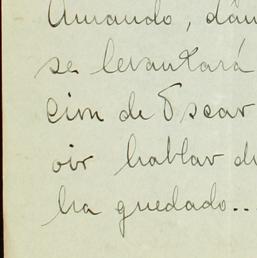 Amando, dán
se levantará
ción de Oscar
oir hablar de
ha quedado..